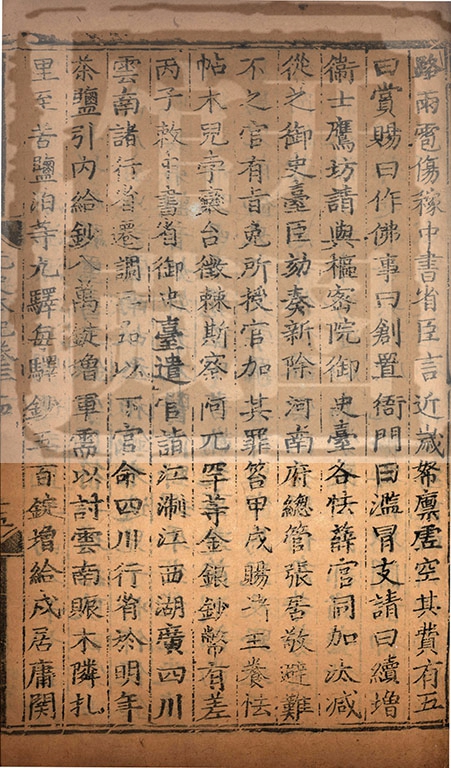 路雨雹傷稼中書省臣言近歲帑廩虚空其費有五
曰賞賜曰作佛事曰創置衙門曰濫冒支請曰續增
衞士鷹坊請與樞密院御史臺各怯薛官同加汰减
從之御史臺臣劾奏新除河南府總管張居敬避難
不之官有旨免所授官加其罪笞甲戌賜王養怯
帖木兒孛欒台徵棘斯察罕等金銀鈔幣有差
丙子敕中書省御史臺遣官詣江浙江西湖廣四川
雲南諸行省遷調官命四川行省於明年
茶鹽引内給鈔八萬錠增軍需以討雲南賑木隣扎
里至苦鹽泊等九驛每驛鈔五百錠增給戍居庸関